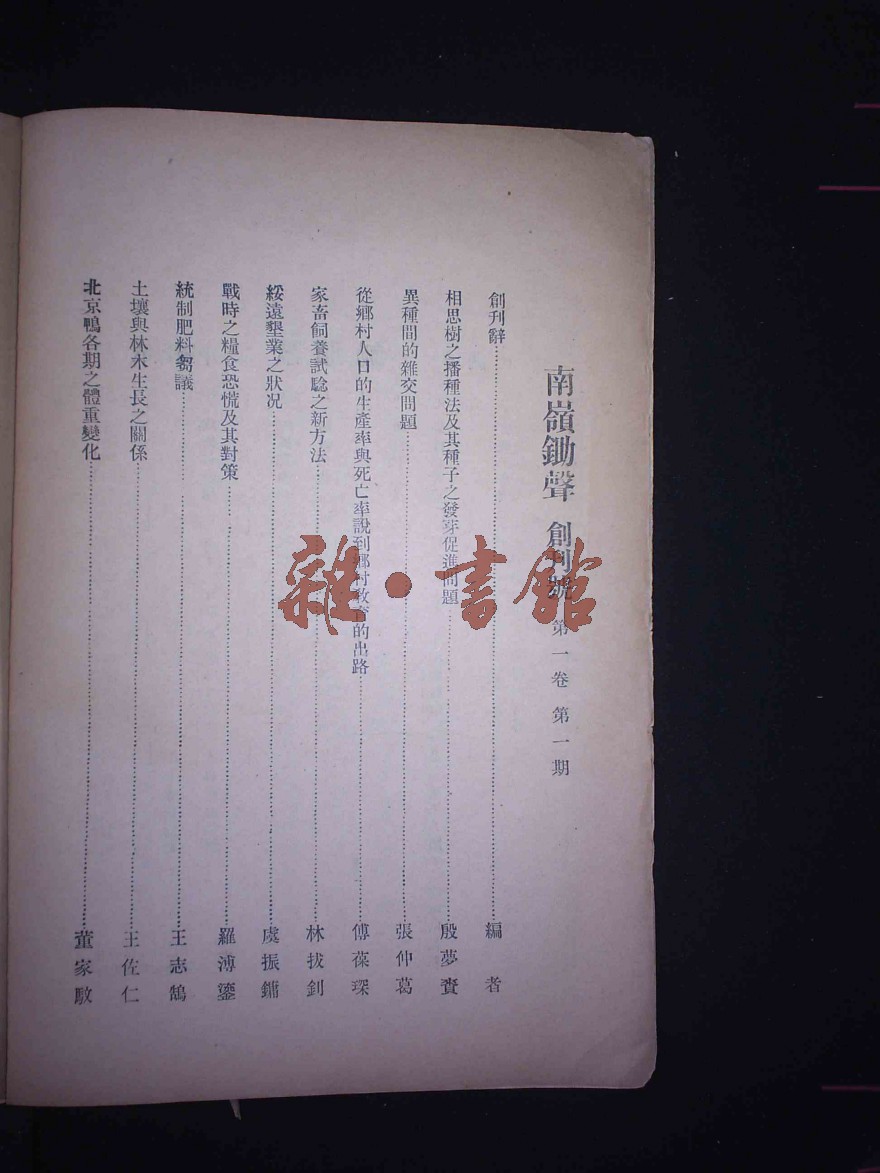 南嶺鋤聲 創刊號 第一卷 第一期
創刊辭……編者
相思樹之播種法及其種子之發芽促進問題……殷夢賚
異種間的雜交問題……張仲葛
從鄉村人口的生產率與死亡率說到鄉村教育的出路……傅葆琛
家畜飼養試驗之新方法……林拔釗
綏遠墾業之狀况……虞振鏞
戰時之糧食恐慌及其對策……羅溥鎏
統制肥料芻議……王志鵠
土壤與林木生長之關係……王佐仁
北京鴨各期之體重變化……董家
雜·書館